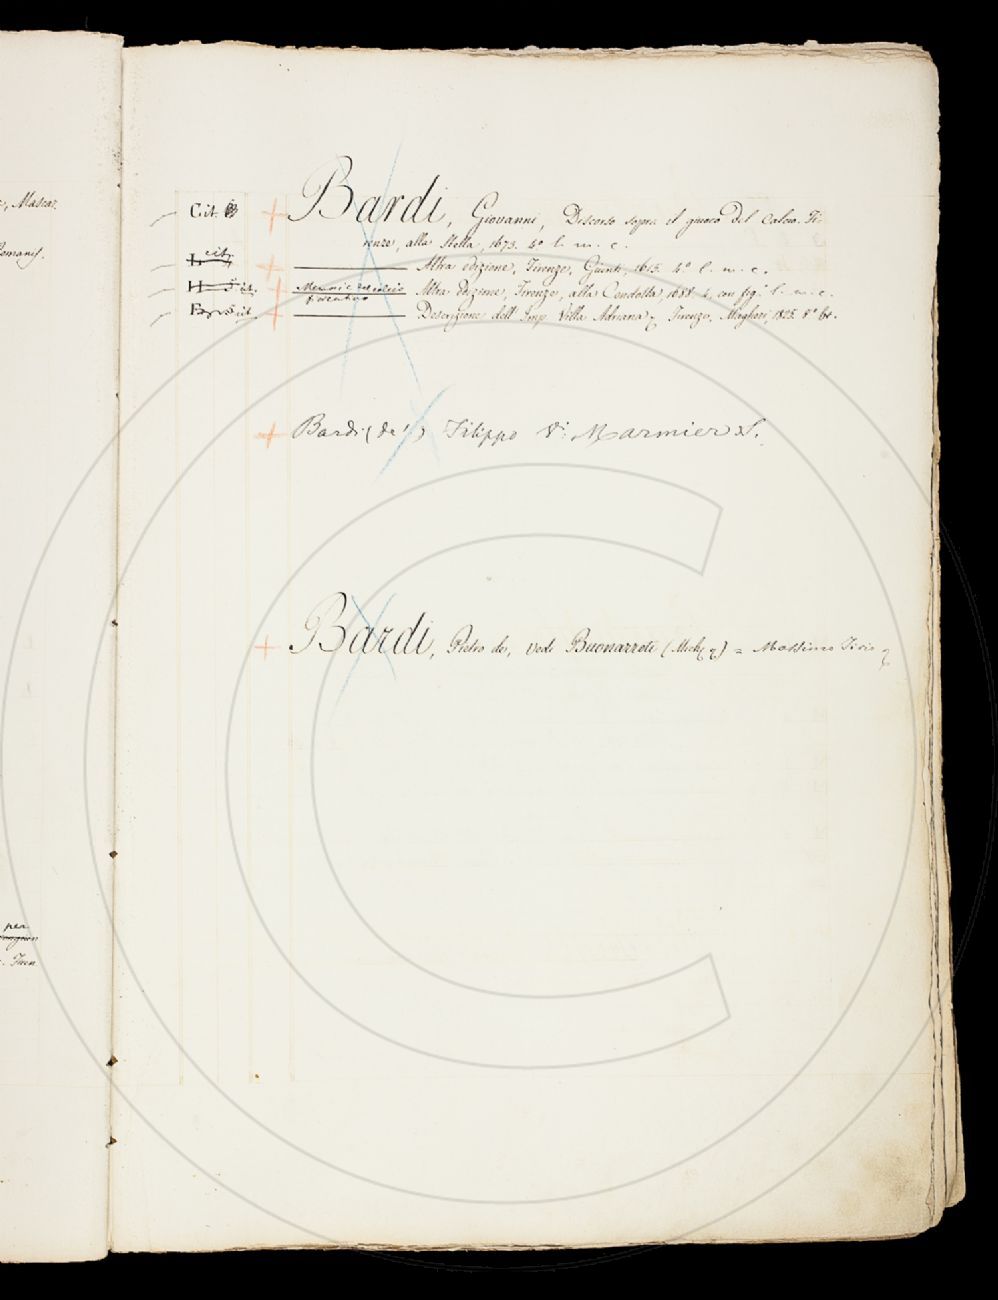 , Mascar.
Romanis.
per
. Firen
Cit.
Bardi, Giovanni, Discorso sopra il giuoco del Calcio. Fi-
renze, alla Stella, 1673. 4º l. m. c.
cit.
Altra edizione, Firenze, Giunti, 1615. 4º l. m. c.
cit. Memorie del calcio Altra edizione, Firenze, alla Condotta, 1688. 4. con fig. l. m. c.
fiorentino
cit. Descrizione dell' Imp. Villa Adriana Firenze, Magheri, 1825. 8º br.
Bardi (de') Filippo Vi. Marmier X.
Bardi, Pietro de, vedi Buonarroti (Mich.) = Massimo Tirio